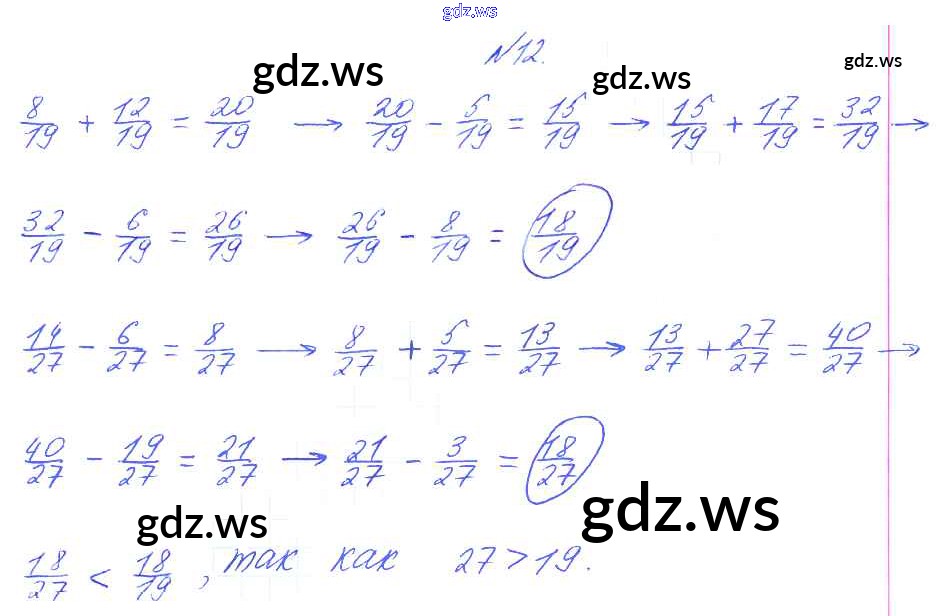 gdz.ws
№12.
gdz.ws gdz.ws gdz.ws
8/19 + 12/19 = 20/19 → 20/19 - 5/19 = 15/19 → 15/19 + 17/19 = 32/19 →
32/19 - 6/19 = 26/19 → 26/19 - 8/19 = 18/19
14/27 - 6/27 = 8/27 → 8/27 + 5/27 = 13/27 → 13/27 + 27/27 = 40/27 →
40/27 - 19/27 = 21/27 → 21/27 - 3/27 = 18/27
gdz.ws gdz.ws
18/27 < 18/19, так как 27 > 19.